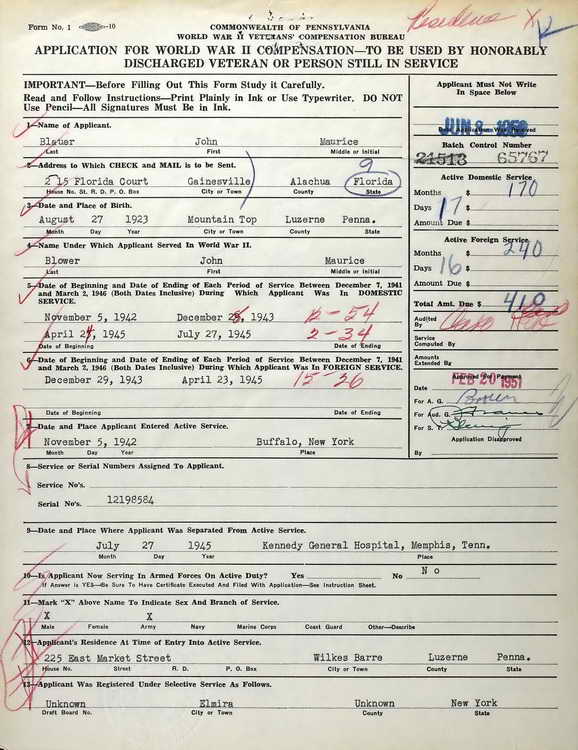 Form No. 1
10
Residence
COMMONWEALTH OF PENNSYLVANIA
WORLD WAR II VETERANS' COMPENSATION BUREAU
APPLICATION FOR WORLD WAR II COMPENSATION—TO BE USED BY HONORABLY
DISCHARGED VETERAN OR PERSON STILL IN SERVICE
IMPORTANT—Before Filling Out This Form Study it Carefully.
Read and Follow Instructions—Print Plainly in Ink or Use Typewriter. DO NOT
Use Pencil—All Signatures Must Be in Ink.
Applicant Must Not Write
In Space Below
1—Name of Applicant.
Blauer John Maurice
Last First Middle or Initial
JUN 8 1950
Date Application Was Received
Batch Control Number
21513 65767
2—Address to Which CHECK and MAIL is to be Sent.
9
2 15 Florida Court Gainesville Alachua Florida
House No. St. R. D. P. O. Box City or Town County State
Active Domestic Service
Months $ 170
Days 17 $
Amount Due $
3—Date and Place of Birth.
August 27 1923 Mountain Top Luzerne Penna.
Month Day Year City or Town County State
4—Name Under Which Applicant Served In World War II.
Blower John Maurice
Last First Middle or Initial
Active Foreign Service
Months $ 240
Days 16 $
Amount Due $
5—Date of Beginning and Date of Ending of Each Period of Service Between December 7, 1941
and March 2, 1946 (Both Dates Inclusive) During Which Applicant Was In DOMESTIC
SERVICE.
November 5, 1942 December 28, 1943 12-54
April 24, 1945 July 27, 1945 2-34
Date of Beginning Date of Ending
Total Amt. Due $ 410
Audited
By
Service
Computed By
Amounts
Extended By
6—Date of Beginning and Date of Ending of Each Period of Service Between December 7, 1941
and March 2, 1946 (Both Dates Inclusive) During Which Applicant Was In FOREIGN SERVICE.
December 29, 1943 April 23, 1945 15-26
Date of Beginning Date of Ending
Approved For Payment
Date FEB 20 1951
For A. G.
For Aud. G.
For S. T.
Application Disapproved
By
7—Date and Place Applicant Entered Active Service.
November 5, 1942 Buffalo, New York
Month Day Year Place
8—Service or Serial Numbers Assigned To Applicant.
Service No's.
Serial No's. 12198584
9—Date and Place Where Applicant Was Separated From Active Service.
July 27 1945 Kennedy General Hospital, Memphis, Tenn.
Month Day Year Place
10—Is Applicant Now Serving In Armed Forces On Active Duty? Yes No N o
If Answer is YES—Be Sure To Have Certificate Executed And Filed With Application—See Instruction Sheet.
11—Mark "X" Above Name To Indicate Sex And Branch of Service.
X X
Male Female Army Navy Marine Corps Coast Guard Other—Describe
12—Applicant's Residence At Time of Entry Into Active Service.
225 East Market Street Wilkes Barre Luzerne Penna.
House No. Street R. D. P. O. Box City or Town County State
13—Applicant Was Registered Under Selective Service As Follows.
Unknown Elmira Unknown New York
Draft Board No. City or Town County State